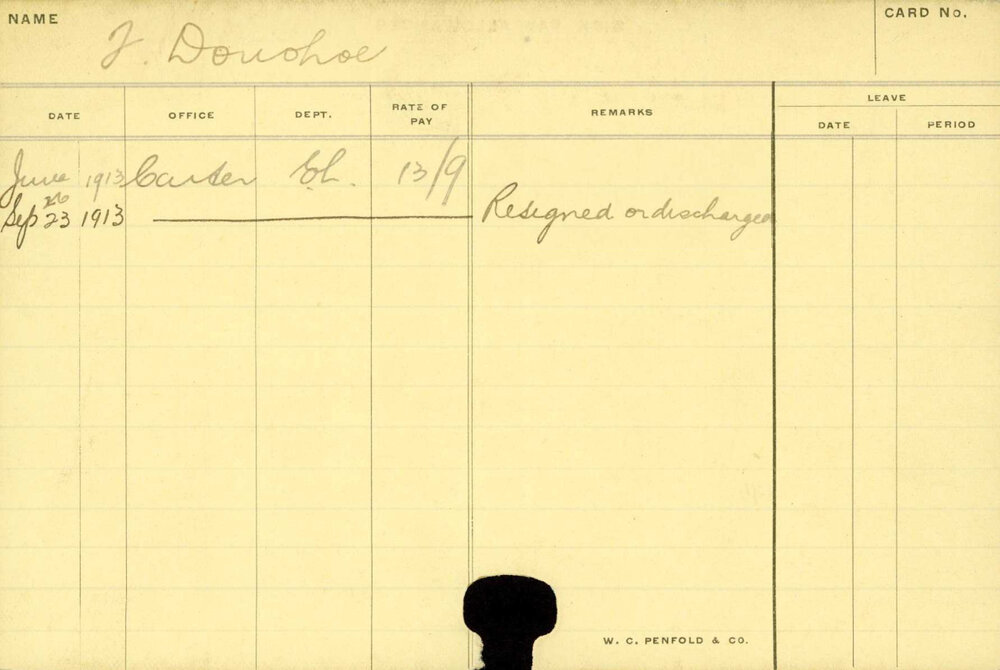 NAME
CARD No.
J. Donohoe
DATE OFFICE DEPT. RATE OF PAY REMARKS LEAVE
DATE PERIOD
June 1913 Carter 13/9
26
Sep 23 1913 Resigned or discharged
W. C. PENFOLD & CO.